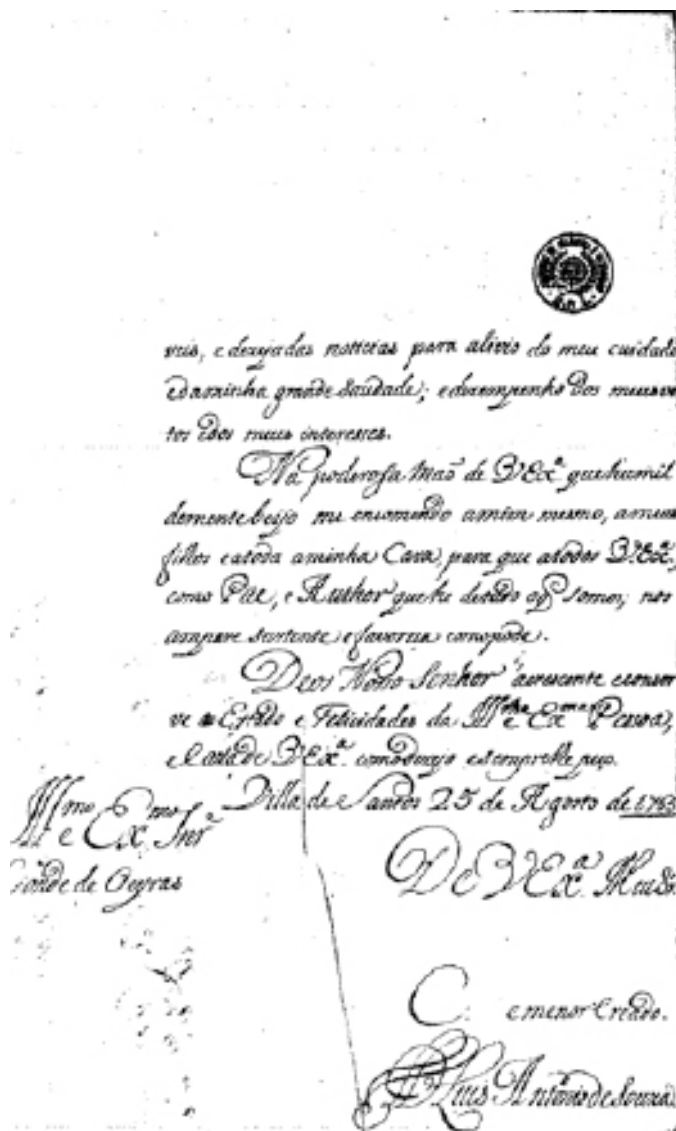 veis, e dezejadas noticias para alivio do meu cuidado
e da minha grande Saudade; e dezempenho dos meus vo
tos e dos meus interesses.
Na poderosa Maõ de V Exª. que humil
demente beijo me encomendo a mim mesmo, a meus
filhos e a toda a minha Caza, para que a todos V. Exª.
como Pae, e Author que he de tudo o q̃ somos, nos
ampare sustente e favoreça como póde.
Deos Nosso Senhor acrescente e conser
ve o Estado e Felicidades da Illma e Exma Pessoa,
e Caza de V Exª. como dezejo e sempre lhe peço.
Villa de Santos 25 de Agosto de
Illmo e Exmo Snr.
Conde de Oeyras
De V Exª.
C.
e menor Creado.
Luis Antonio de Souza